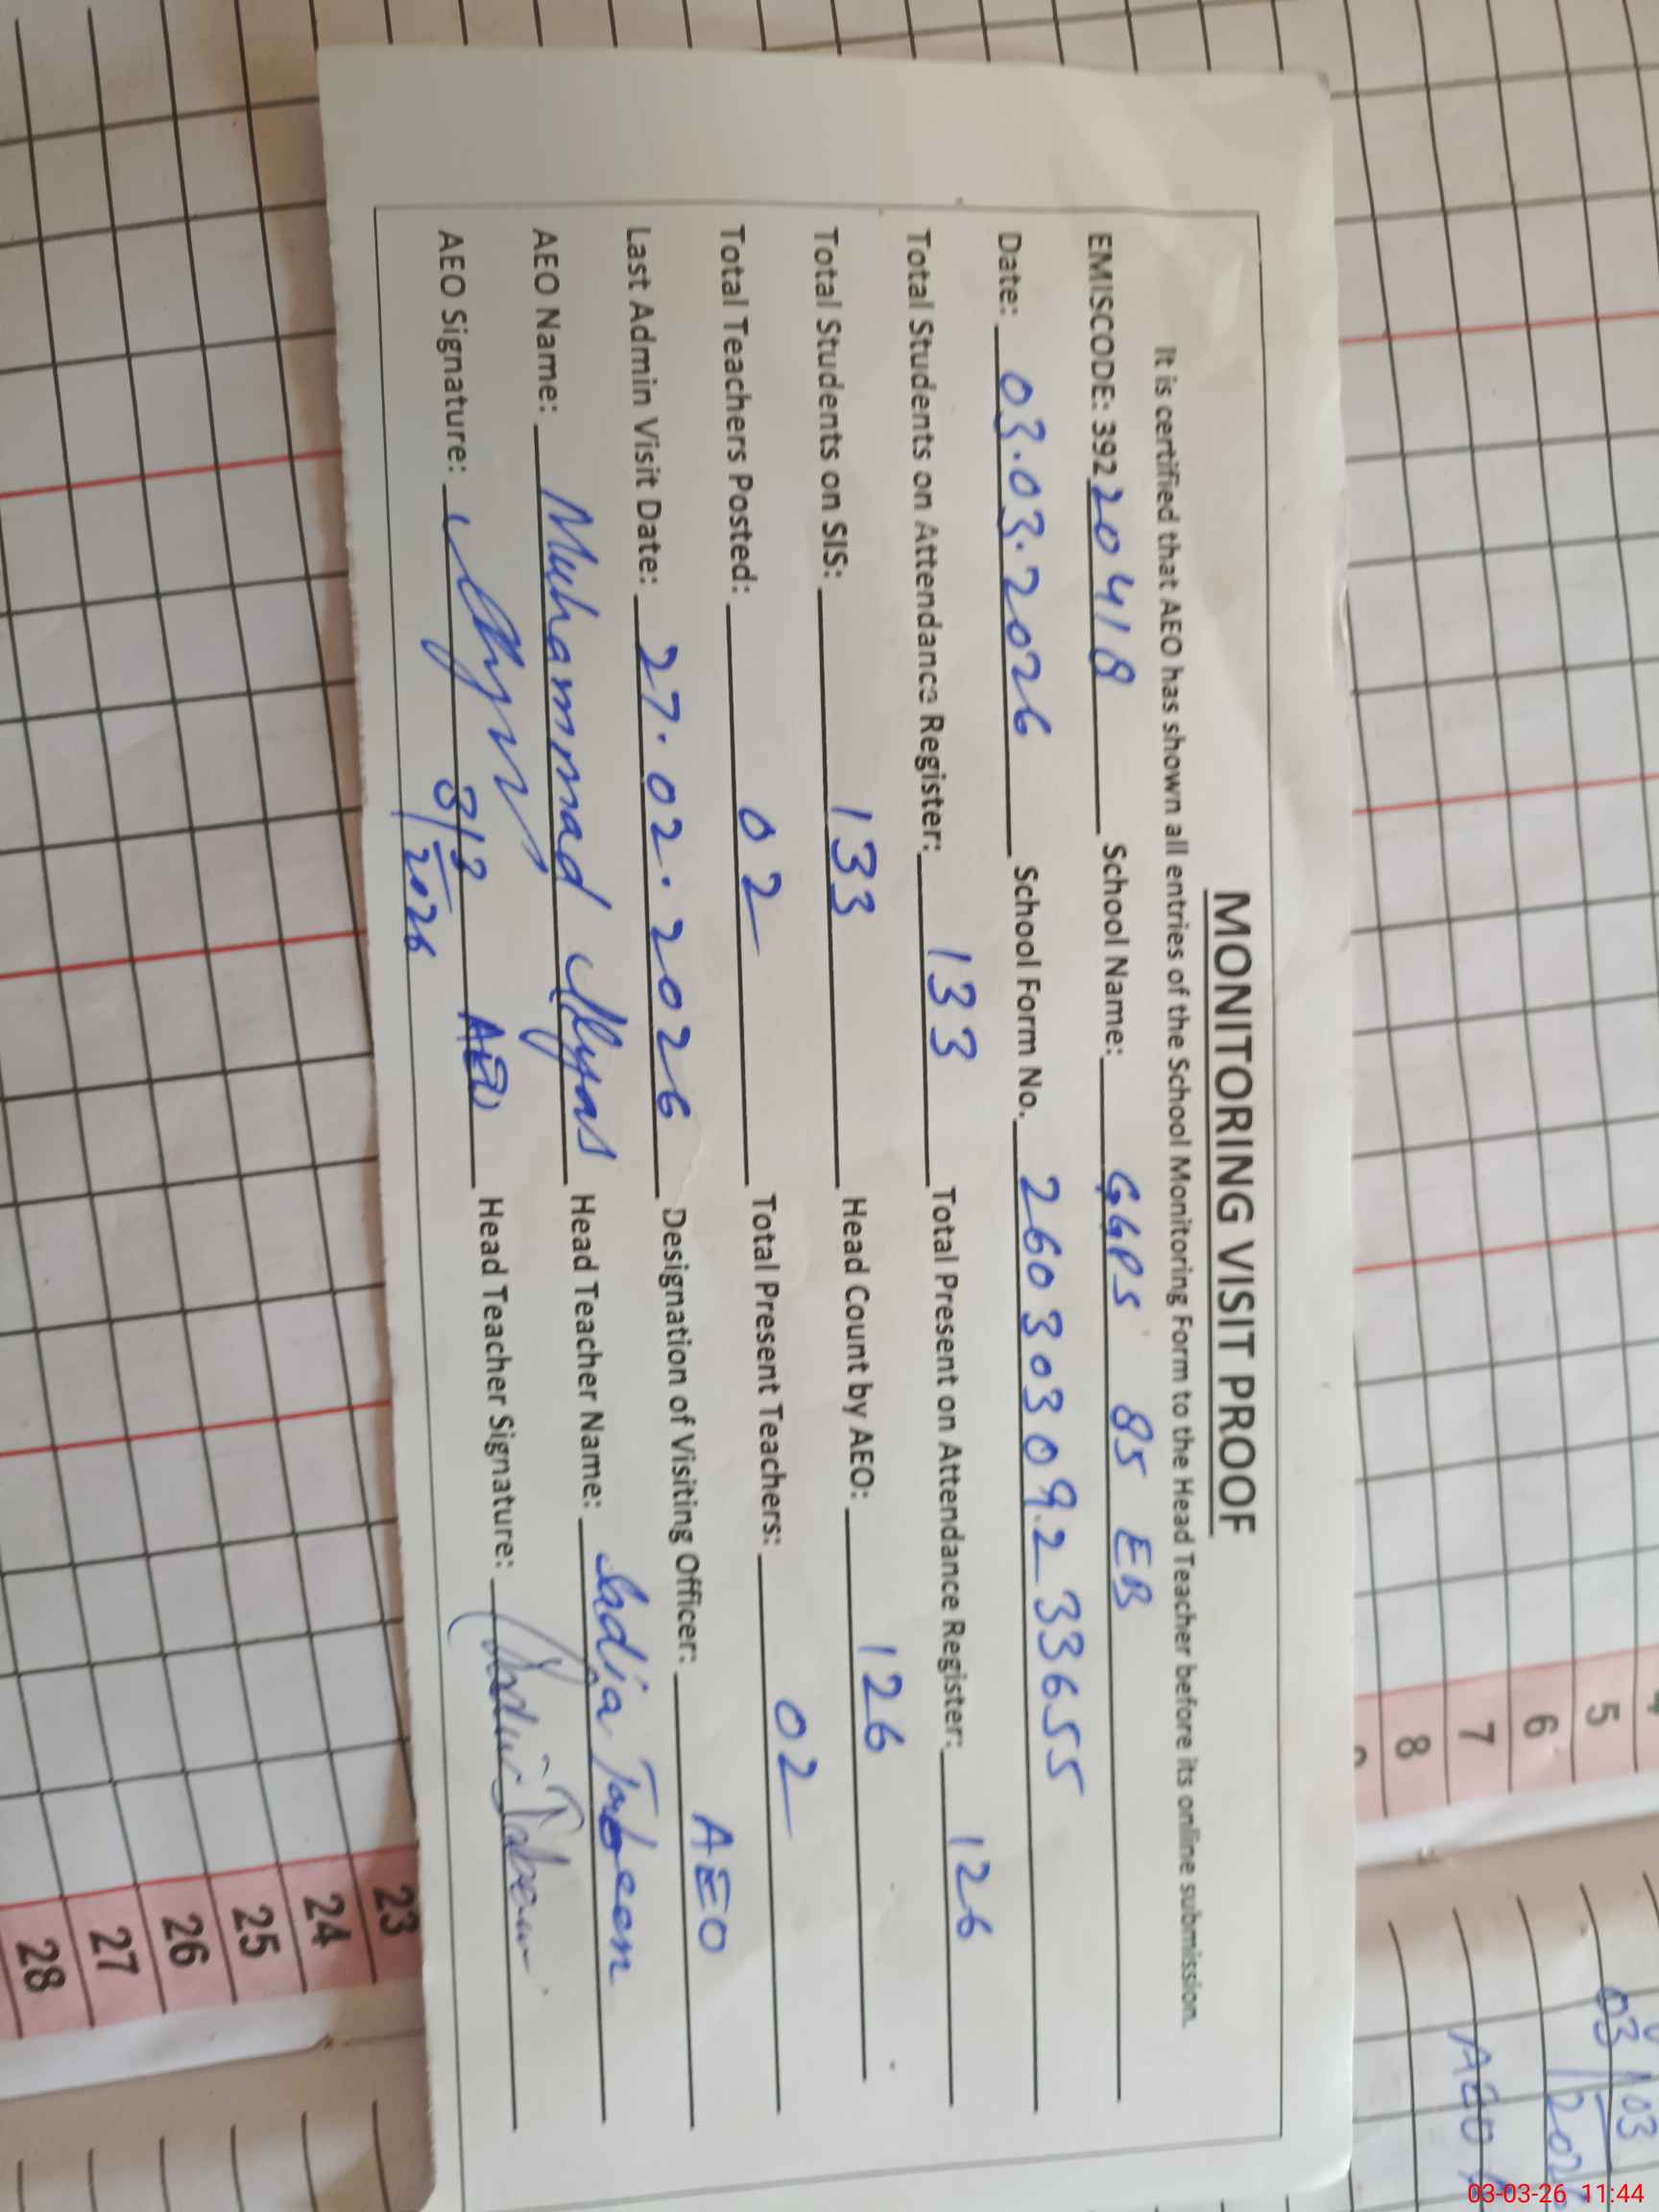 MONITORING VISIT PROOF
It is certified that AEO has shown all entries of the School Monitoring Form to the Head Teacher before its online submission.
EMISCODE: 39220418 School Name: GGPS 85 EB
Date: 03.03.2026 School Form No. 2603030923 3655
Total Students on Attendance Register: 133 Total Present on Attendance Register: 126
Total Students on SIS: 133 Head Count by AEO: 126
Total Teachers Posted: 02 Total Present Teachers: 02
Last Admin Visit Date: 27.02.2026 Designation of Visiting Officer: AEO
AEO Name: Muhammad Ilyas Head Teacher Name: Sadia Tabeen
AEO Signature: 3/3/2026 AEO Head Teacher Signature:
4
5
6
7
8
23
24
25
26
27
28
03/03
202
AEO
03-03-26 11:44